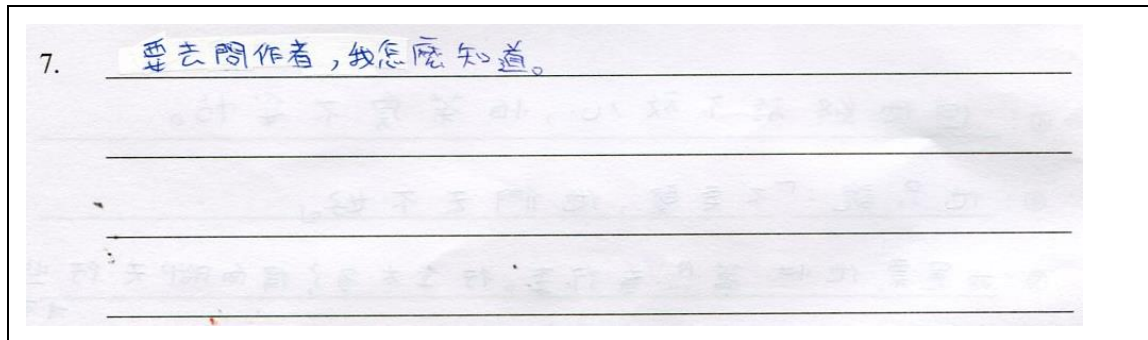 7. 要去問作者，我怎麼知道。